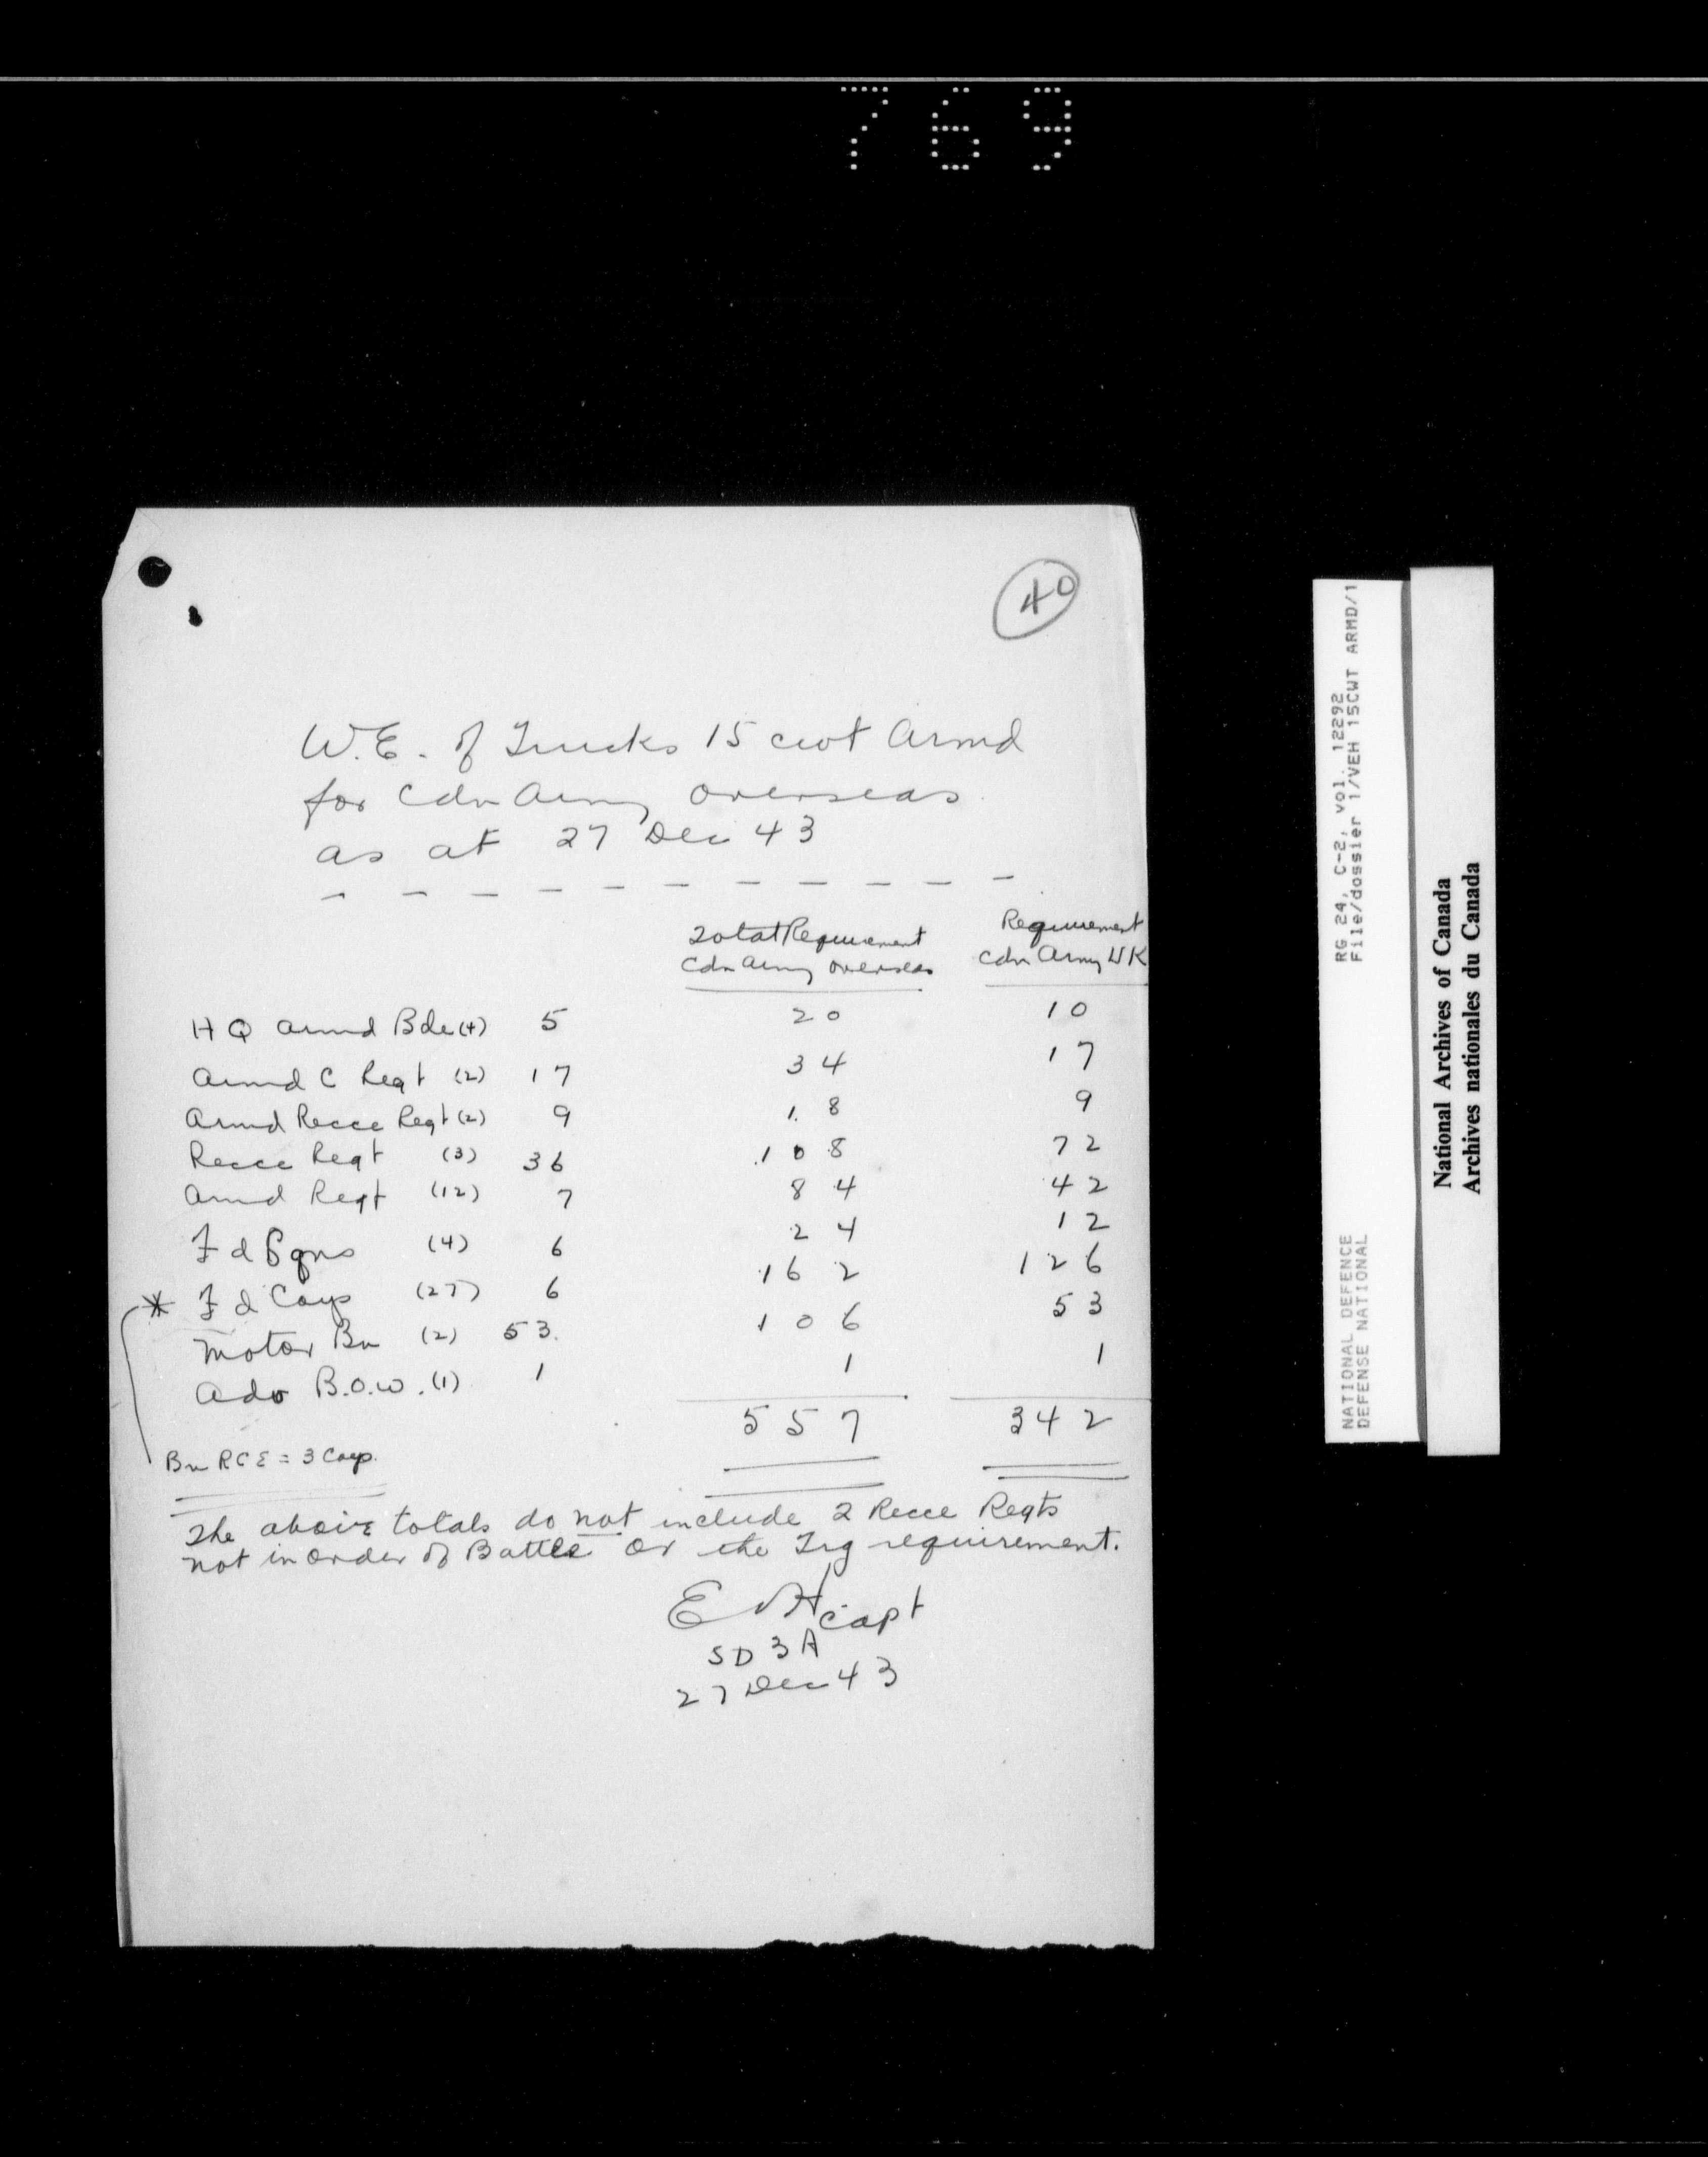 769
40
W.E. of Trucks 15 cwt Armd
for Cdn Army Overseas
as at 27 Dec 43
Total Requirement Requirement
Cdn Army Overseas Cdn Army UK
HQ Armd Bde (4) 5 20 10
Armd C Regt (2) 17 34 17
Armd Recce Regt (2) 9 18 9
Recce Regt (3) 36 108 72
Armd Regt (12) 7 84 42
Fd Sqns (4) 6 24 12
* Fd Coys (27) 6 162 126
Motor Bn (2) 53 106 53
Adv B.O.W. (1) 1 1 1
557 342
Bn RCE = 3 Coys.
The above totals do not include 2 Recce Regts
not in Order of Battle or the Trg requirement.
Capt
SD 3 A
27 Dec 43
RG 24, C-2, vol. 12292
File/dossier 1/VEH 15CWT ARMD/1
NATIONAL DEFENCE
DEFENSE NATIONAL
National Archives of Canada
Archives nationales du Canada